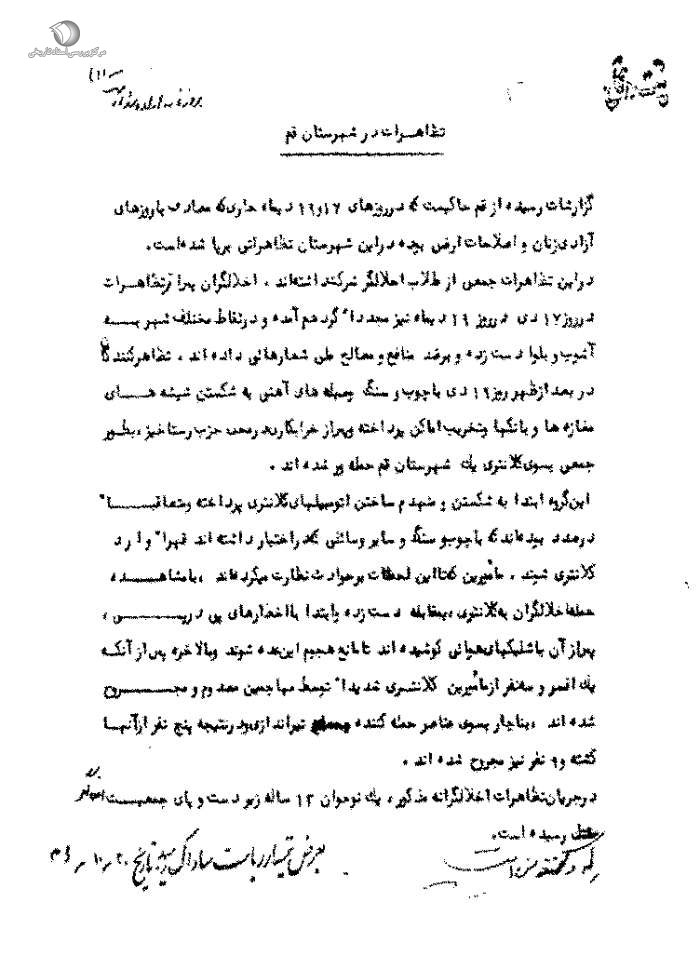 مرکز بررسی اسناد تاریخی
تظاهرات در شهرستان قم
گزارشات رسیده از قم حاکیست که در روزهای ۱۷ و ۱۹ دیماه جاری که مصادف با روزهای
آزادی زنان و اصلاحات ارضی بوده در این شهرستان تظاهراتی برپا شده است.
در این تظاهرات جمعی از طلاب اخلالگر شرکت داشته‌اند ، اخلالگران پس از تظاهرات
در روز ۱۷ دی در روز ۱۹ دیماه نیز مجدداً گرد هم آمده و در نقاط مختلف شهر به
آشوب و بلوا دست زده و بر ضد منافع و مصالح ملی شعارهائی داده اند . تظاهرکنندگان
در بعد از ظهر روز ۱۹ دی با چوب و سنگ و میله های آهنی به شکستن شیشه های
مغازه ها و بانکها و تخریب اماکن پرداخته و پس از خرابکاری در محل حزب رستاخیز ، بطور
جمعی بسوی کلانتری یک شهرستان قم حمله ور شده اند .
این گروه ابتدا به شکستن و منهدم ساختن اتومبیلهای کلانتری پرداخته و متعاقباً
درصدد بوده‌اند که با چوب و سنگ و سایر وسائلی که در اختیار داشته اند قهراً وارد
کلانتری شوند . مأمورین که تا این لحظات بر حوادث نظارت میکرده‌اند ، با مشاهده
حمله اخلالگران به کلانتری ، بمقابله دست زده و ابتدا با اخطارهای پی در پی ،
پس از آن با شلیکهای هوائی کوشیده اند تا مانع هجوم این عده شوند و بالاخره پس از آنکه
یک افسر و سه نفر از مأمورین کلانتری شدیداً توسط مهاجمین مصدوم و مجروح
شده اند ، بناچار بسوی عناصر حمله کننده تیراندازی و در نتیجه پنج نفر از آنها
کشته و ۹ نفر نیز مجروح شده اند .
در جریان تظاهرات اخلالگرانه مذکور ، یک نوجوان ۱۳ ساله زیر دست و پای جمعیت
بقتل رسیده است.
بعرض تیمسار ریاست ساواک رسید بتاریخ ۲۰ر۱۰ر۳۶